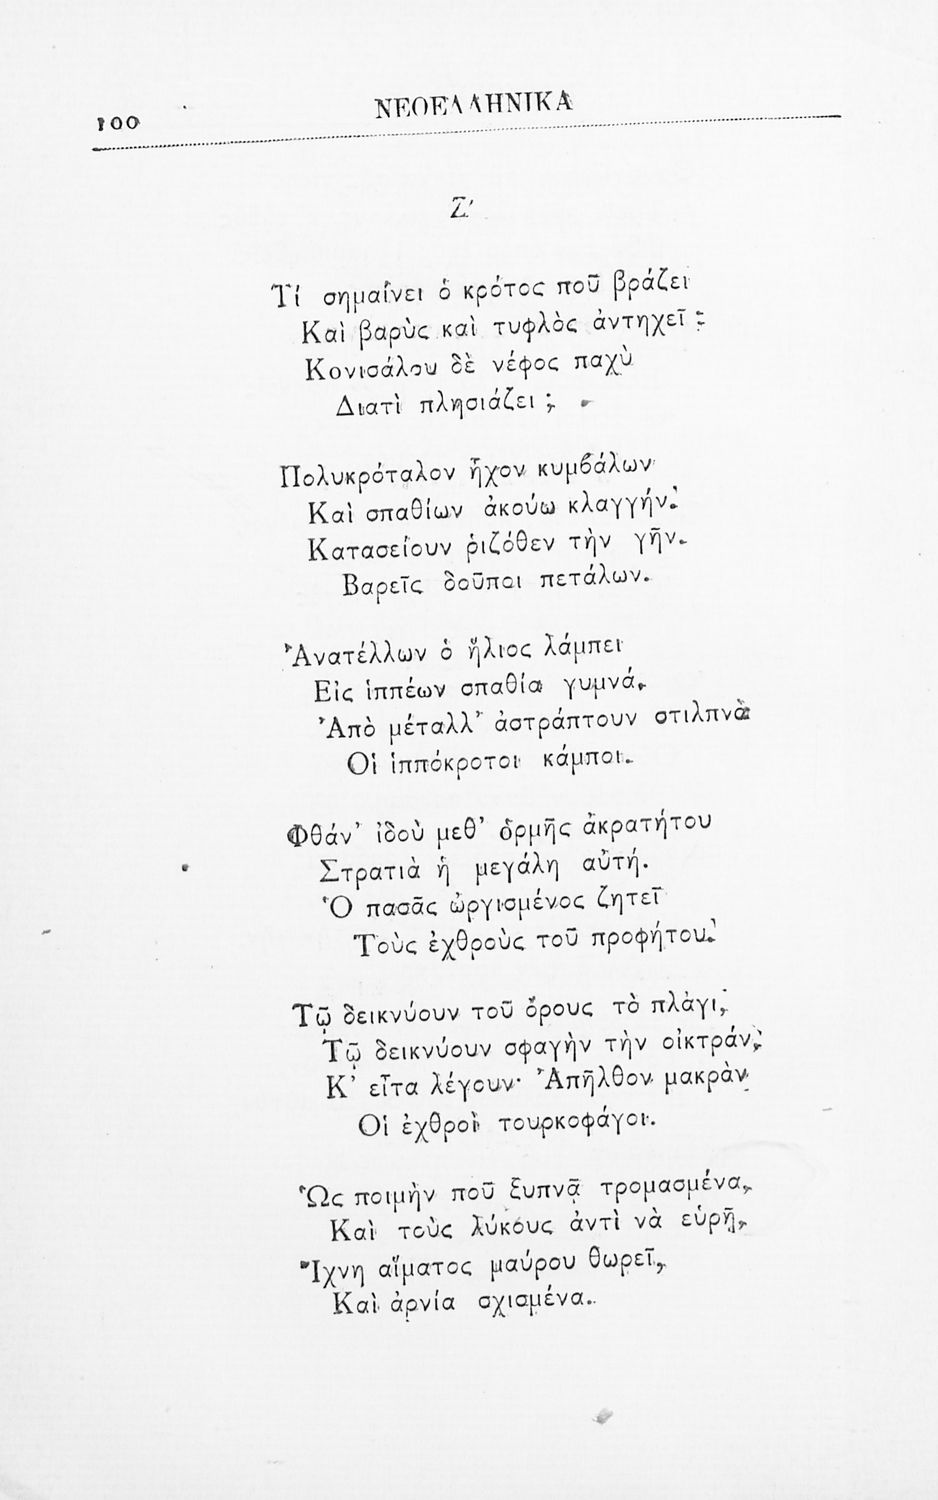 100
ΝΕΟΕΛΛΗΝΙΚΑ
Ζ'
Τί σημαίνει ὁ κρότος ποῦ βράζει
Καὶ βαρὺς καὶ τυφλὸς ἀντηχεῖ ;
Κονισάλου δὲ νέφος παχὺ
Διατὶ πλησιάζει ;
Πολυκρόταλον ἦχον κυμϐάλων
Καὶ σπαθίων ἀκούω κλαγγήν.
Κατασείουν ῥιζόθεν τὴν γῆν.
Βαρεῖς δοῦποι πετάλων.
Ἀνατέλλων ὁ ἥλιος λάμπει
Εἰς ἱππέων σπαθία γυμνά,
Ἀπὸ μέταλλ' ἀστράπτουν στιλπνὰ
Οἱ ἱππόκροτοι κάμποι.
Φθάν' ἰδοὺ μεθ' ὁρμῆς ἀκρατήτου
Στρατιὰ ἡ μεγάλη αὐτή.
Ὁ πασᾶς ὠργισμένος ζητεῖ
Τοὺς ἐχθροὺς τοῦ προφήτου.
Τῷ δεικνύουν τοῦ ὄρους τὸ πλάγι,
Τῷ δεικνύουν σφαγὴν τὴν οἰκτράν,
Κ' εἶτα λέγουν· Ἀπῆλθον μακρὰν
Οἱ ἐχθροὶ τουρκοφάγοι.
Ὡς ποιμὴν ποῦ ξυπνᾷ τρομασμένα,
Καὶ τοὺς λύκους ἀντὶ νὰ εὑρῇ,
Ἴχνη αἵματος μαύρου θωρεῖ,
Καὶ ἀρνία σχισμένα.